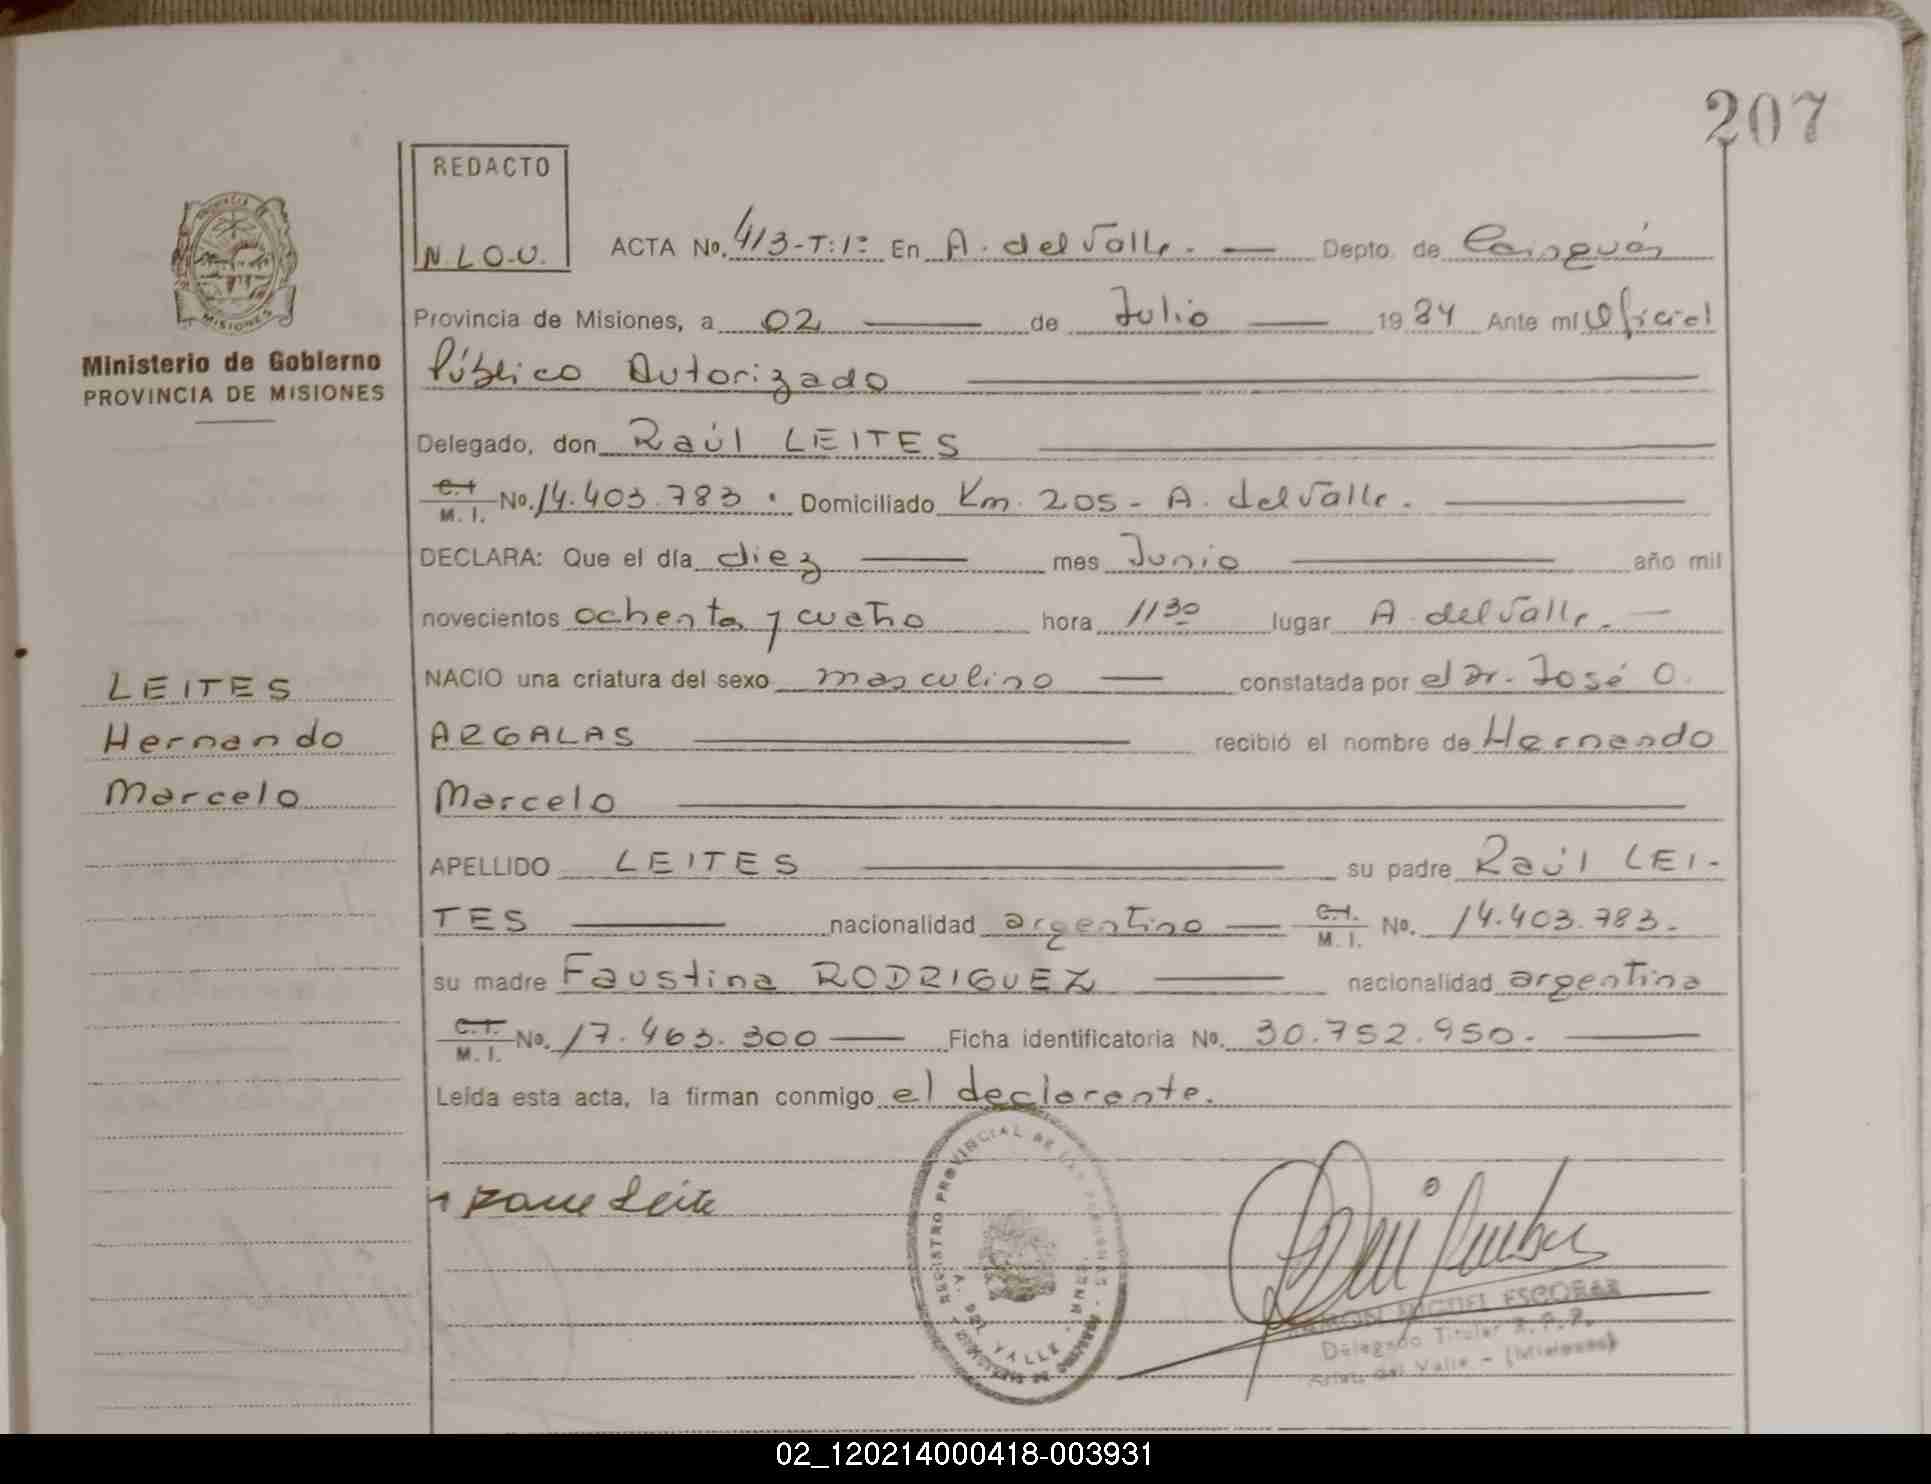 207
REDACTO
N.L.O.U.
ACTA No. 413-T:1º En A. del Valle. — Depto. de Cainguás
PROVINCIA DE
MISIONES
Ministerio de Gobierno
PROVINCIA DE MISIONES
Provincia de Misiones, a 02 — de Julio — 1984 Ante mi Oficial
Público Autorizado
Delegado, don Raúl LEITES
C.I M.I. No. 14.403.783. Domiciliado Km. 205 - A. del Valle.
DECLARA: Que el día diez — mes Junio — año mil
novecientos ochenta y cuatro hora 11 30 lugar A. del Valle. —
NACIO una criatura del sexo masculino — constatada por el Dr. José O.
ARGALAS — recibió el nombre de Hernando
Marcelo
APELLIDO LEITES — su padre Raúl LEI-
TES — nacionalidad argentino — C.I. M.I. No. 14.403.783.
su madre Faustina RODRIGUEZ — nacionalidad argentina
C.I. M.I. No. 17.463.300 — Ficha identificatoria No. 30.752.950. —
Leída esta acta, la firman conmigo el declarante.
LEITES
Hernando
Marcelo
REGISTRO PROVINCIAL DE LAS PERSONAS
A. DEL VALLE
RAMON MIGUEL ESCOBAR
Delegado Titular R. P. P.
del Valle - (Misiones)
02_120214000418-003931